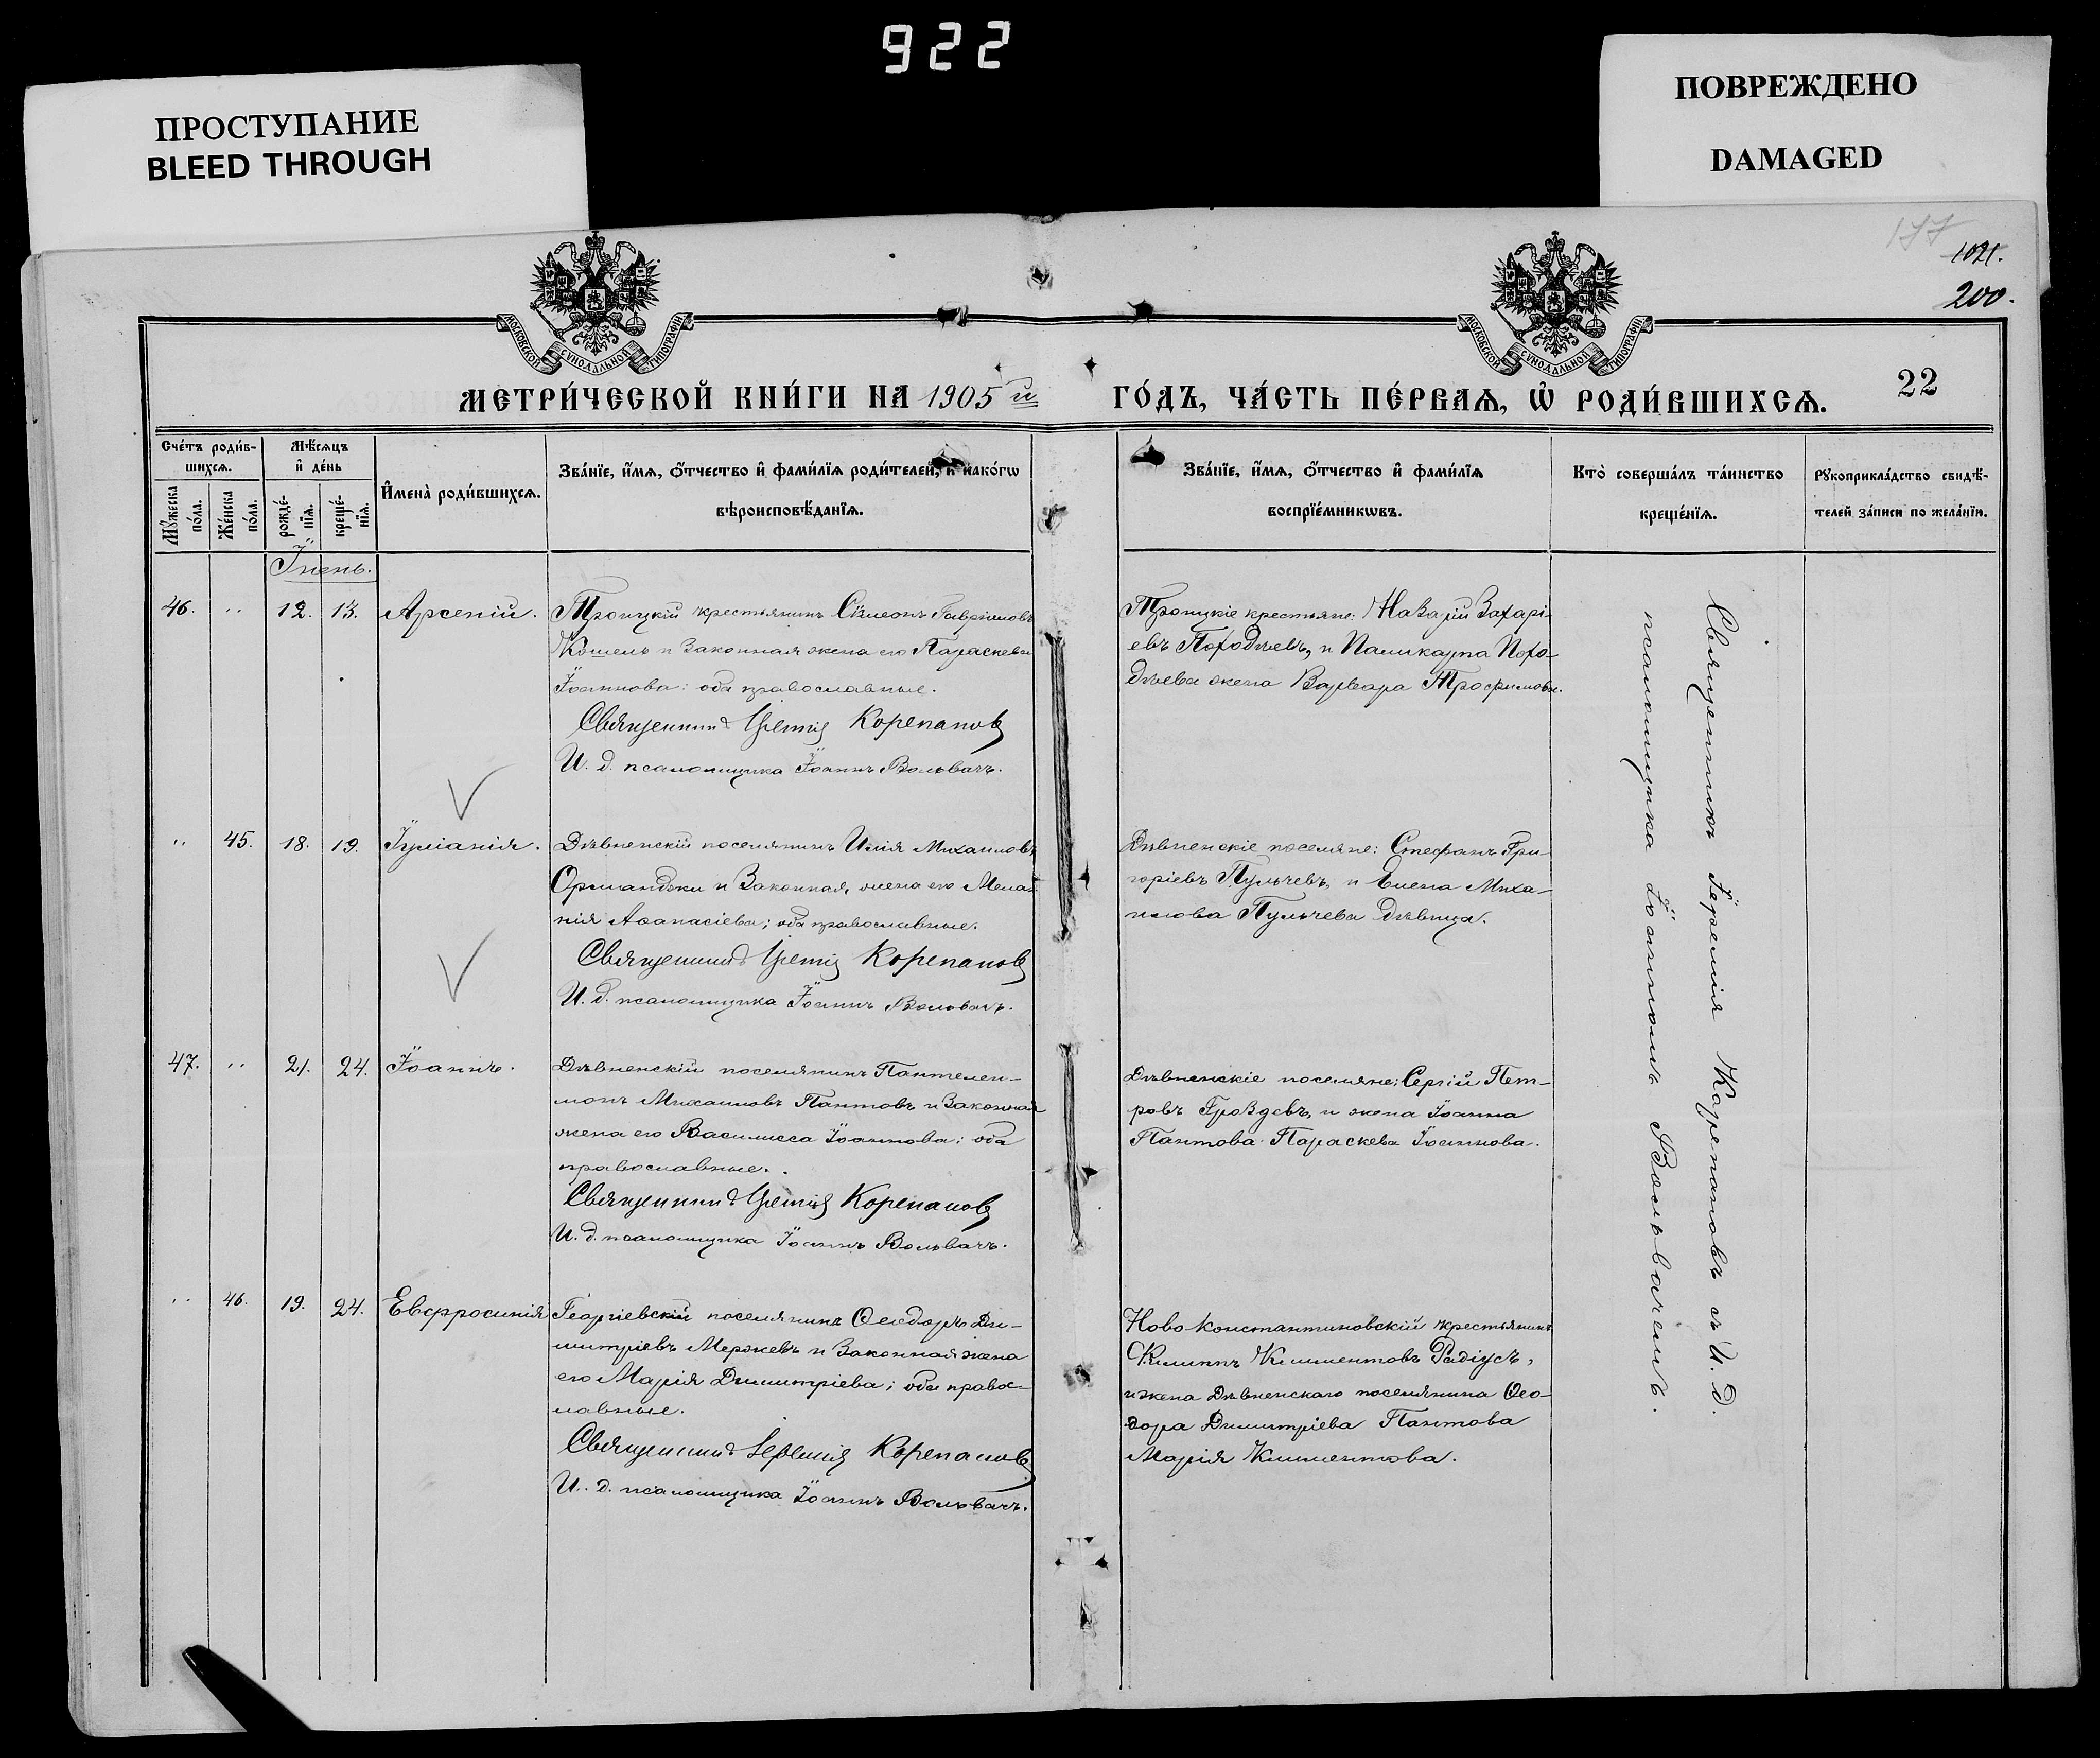 922
ПРОСТУПАНИЕ
BLEED THROUGH
ПОВРЕЖДЕНО
DAMAGED
177
1021.
200.
МОСКОВСКОЙ СУНОДАЛЬНОЙ ТИПОГРАФІИ
МОСКОВСКОЙ СУНОДАЛЬНОЙ ТИПОГРАФІИ
МЕТРИ́ЧЕСКОЙ КНИ́ГИ НА 1905й ГО́ДЪ, ЧА́СТЬ ПЕ́РВАѦ, Ѡ҆ РОДИ́ВШИХСѦ.
22
Сче́тъ роди́в-
шихсѧ.
Мꙋ́жеска
по́ла.
Же́нска
по́ла.
Мѣ́сѧцъ
и҆ де́нь
рожде́-
нїѧ.
креще́-
нїѧ.
И҆мена̀ роди́вшихсѧ.
Зва́нїе, и҆́мѧ, ѻ҆́тчество и҆ фами́лїѧ роди́телей, и҆ како́гѡ
вѣроисповѣ́данїѧ.
Зва́нїе, и҆́мѧ, ѻ҆́тчество и҆ фами́лїѧ
воспрїе́мникѡвъ.
Кто̀ соверша́лъ та́инство
креще́нїѧ.
Рꙋкоприкла́дство свидѣ́-
телей за́писи по жела́нїю.
Іюнь.
46. " 12. 13. Арсеній.
Троицкій крестьянинъ Сѵмеонъ Гавріиловъ
Кошель и законная жена его Параскева
Іоаннова: оба православные.
Священникъ Іеремія Корепановъ
И. д. псаломщика Іоаннъ Вольвачъ.
Троицкіе крестьяне: Назарій Захарі-
евъ Погодѣевъ, и Паликарпа Пого-
дѣева жена Варвара Трофимова.
" 45. 18. 19. Іуліанія.
Дѣвненскій поселянинъ Илія Михаиловъ
Орманджи и законная жена его Мела-
нія Аѳанасіева; оба православные.
Священникъ Іеремія Корепановъ
И. д. псаломщика Іоаннъ Вольвачъ.
Дѣвненскіе поселяне: Стефанъ Гри-
горіевъ Пульчевъ, и Елена Миха-
илова Пульчева дѣвица.
47. " 21. 24. Іоаннъ.
Дѣвненскій поселянинъ Пантелеи-
монъ Михаиловъ Пантовъ и законная
жена его Василисса Іоаннова: оба
православные.
Священникъ Іеремія Корепановъ
И. д. псаломщика Іоаннъ Вольвачъ.
Дѣвненскіе поселяне: Сергій Пет-
ровъ Гроздевъ, и жена Іоанна
Пантова Параскева Іоаннова.
" 46. 19. 24. Евфросинія
Георгіевскій поселянинъ Ѳеодоръ Ди-
митріевъ Мержевъ и законная жена
его Марія Димитріева; оба правос-
лавные.
Священникъ Іеремія Корепановъ
И. д. псаломщика Іоаннъ Вольвачъ.
Ново-Константиновскій крестьянинъ
Филиппъ Климентовъ Радіусъ,
и жена Дѣвненскаго поселянина Ѳео-
дора Димитріева Пантова
Марія Климентова.
Священникъ Іеремія Корепановъ съ И. д.
псаломщика Іоанномъ Вольвачемъ.